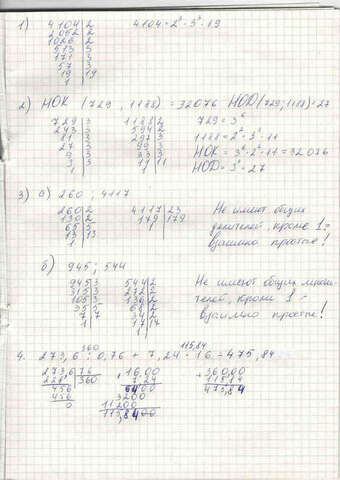 1) 4104 | 2    4104 = 2³ · 3³ · 19
2052 | 2
1026 | 2
513 | 3
171 | 3
57 | 3
19 | 19
1
2) НОК (729, 1188) = 32076 НОД (729, 1188) = 27
729 | 3    1188 | 2    729 = 3⁶
243 | 3    594 | 2    1188 = 2² · 3³ · 11
81 | 3    297 | 3
27 | 3    99 | 3    НОК = 3⁶ · 2² · 11 = 32076
9 | 3    33 | 3    НОД = 3³ = 27
3 | 3    11 | 11
1    1
3) а) 260; 4117
260 | 2    4117 | 23    Не имеют общих
130 | 2    179 | 179    делителей, кроме 1 =
65 | 5    1    взаимно простые!
13 | 13
1
б) 945; 544
945 | 3    544 | 2    Не имеют общих
315 | 3    272 | 2    телей, кроме 1 -
105 | 3    136 | 2    взаимно простые!
35 | 5    68 | 2
7 | 7    34 | 2
1    17 | 17
1
360    115,84
4. 273,6 : 0,76 + 7,24 · 16 = 475,84
273,6 | 76    16,00    + 360,00
228 | 360    7,24    115,84
456    6400    475,84
456    3200
0    11200
115,8400